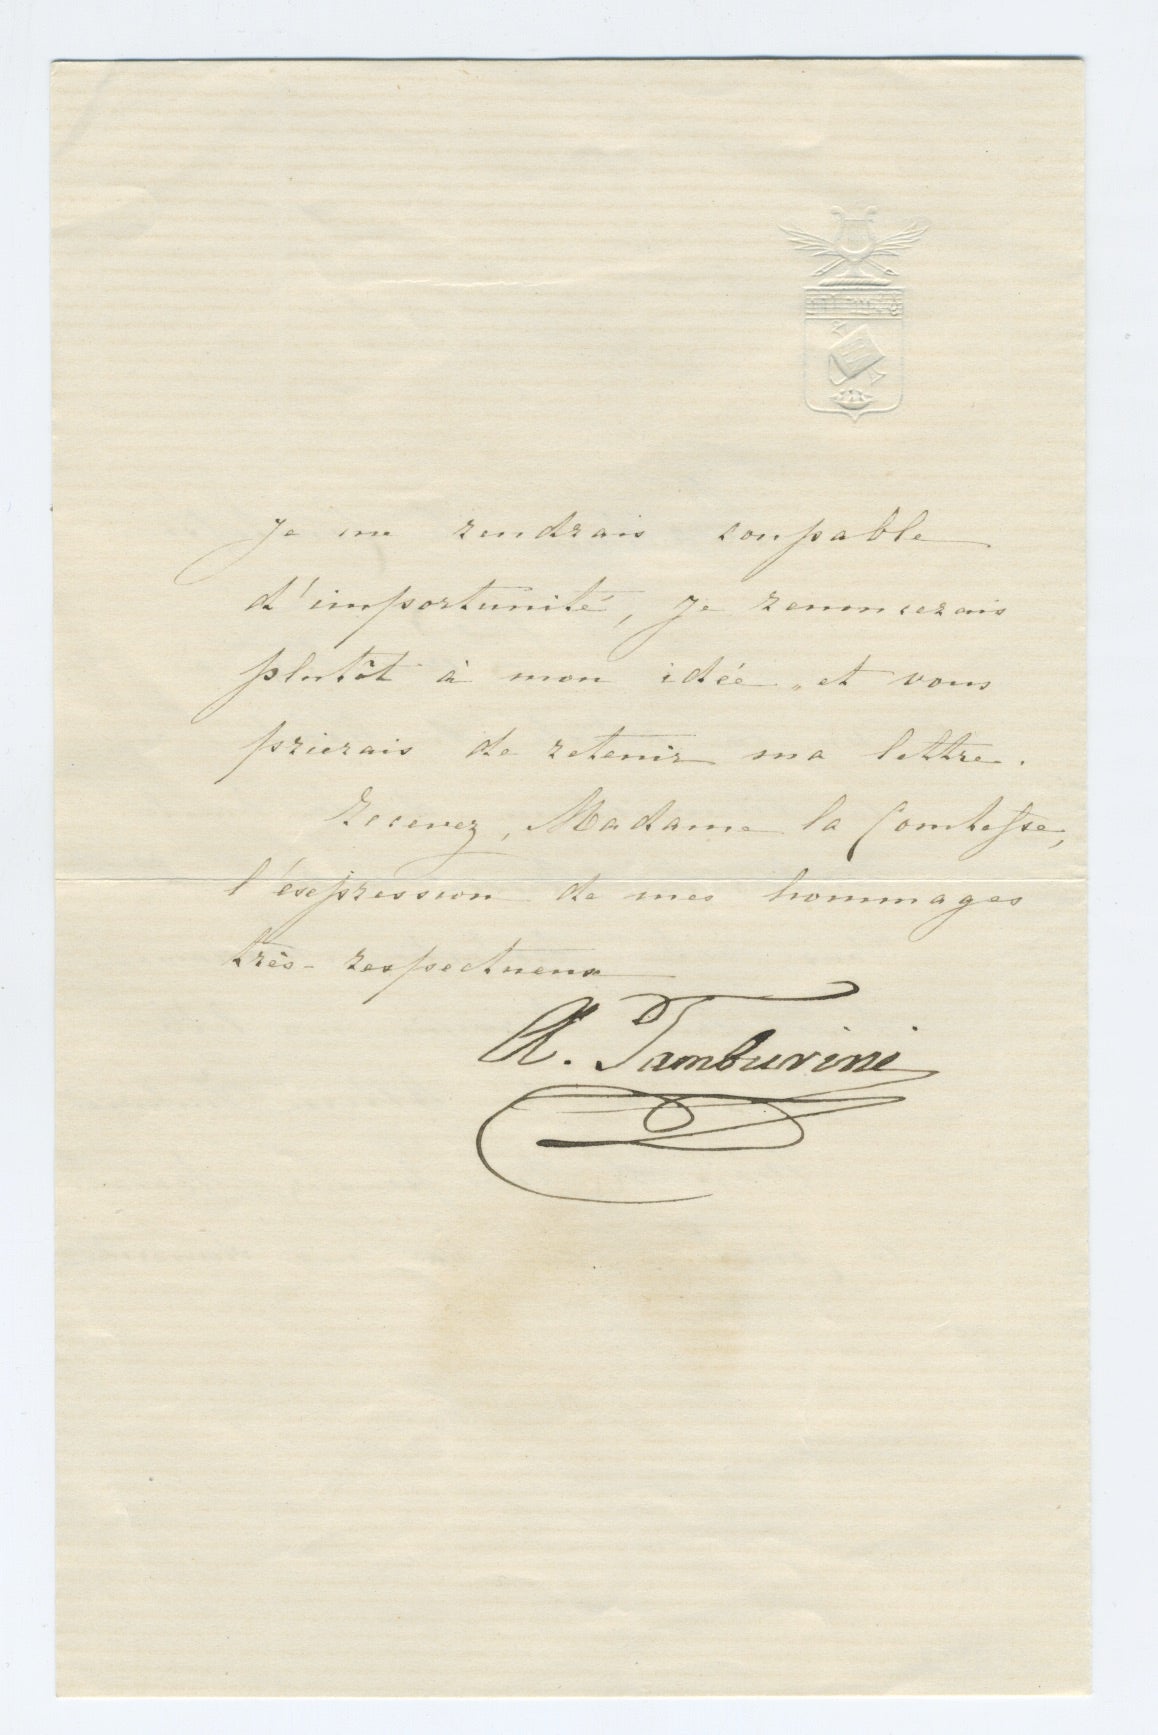 Je me rendrais coupable
d'importunité, je renoncerais
plutôt à mon idée, et vous
prierais de retenir ma lettre.
Recevez, Madame la Comtesse,
l'éxpression de mes hommages
très-respectueux
A. Tamburini